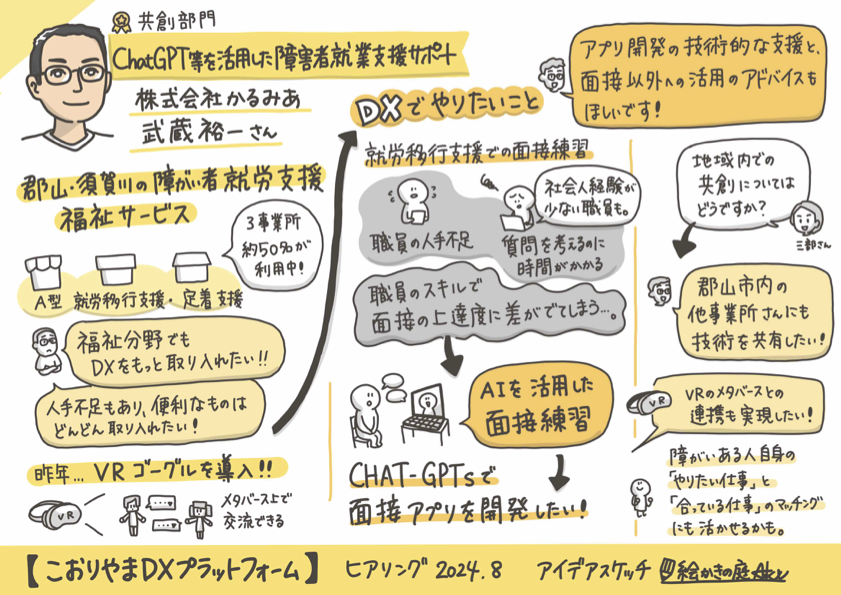 共創部門
ChatGPT等を活用した障害者就業支援サポート
株式会社かるみあ
武蔵裕一さん
郡山・須賀川の障がい者就労支援
福祉サービス
3事業所
約50名が
利用中!
A型 就労移行支援・定着支援
福祉分野でも
DXをもっと取り入れたい!!
人手不足もあり、便利なものは
どんどん取り入れたい!
昨年… VRゴーグルを導入!!
VR
メタバース上で
交流できる
DXでやりたいこと
就労移行支援での面接練習
職員の人手不足
社会人経験が
少ない職員も。
質問を考えるのに
時間がかかる
職員のスキルで
面接の上達度に差がでてしまう…。
AIを活用した
面接練習
CHAT-GPTsで
面接アプリを開発したい!
アプリ開発の技術的な支援と、
面接以外への活用のアドバイスも
ほしいです!
地域内での
共創については
どうですか?
三部さん
郡山市内の
他事業所さんにも
技術を共有したい!
VR
VRのメタバースとの
連携も実現したい!
障がいある人自身の
「やりたい仕事」と
「合っている仕事」のマッチング
にも活かせるかも。
【こおりやまDXプラットフォーム】 ヒアリング 2024.8 アイデアスケッチ 絵かきの庭